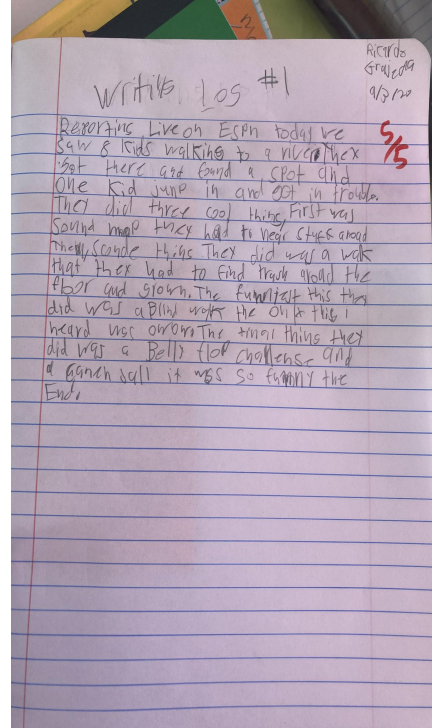 Ricardo
Grajeda
9/3/20
Writing Log #1
5/5
Reporting Live on ESPN today we
saw 8 kids walking to a river they
got there and found a spot and
one kid jump in and got in trouble.
They did three cool thing, First was
Sound map they had to hear stuff
They did was a walk
that they had to find trash the
floor and The funniest this they
did was a Blind walk the this I
heard was The final thing they
did was a Belly flop challenge and
a it was so funny the
End.